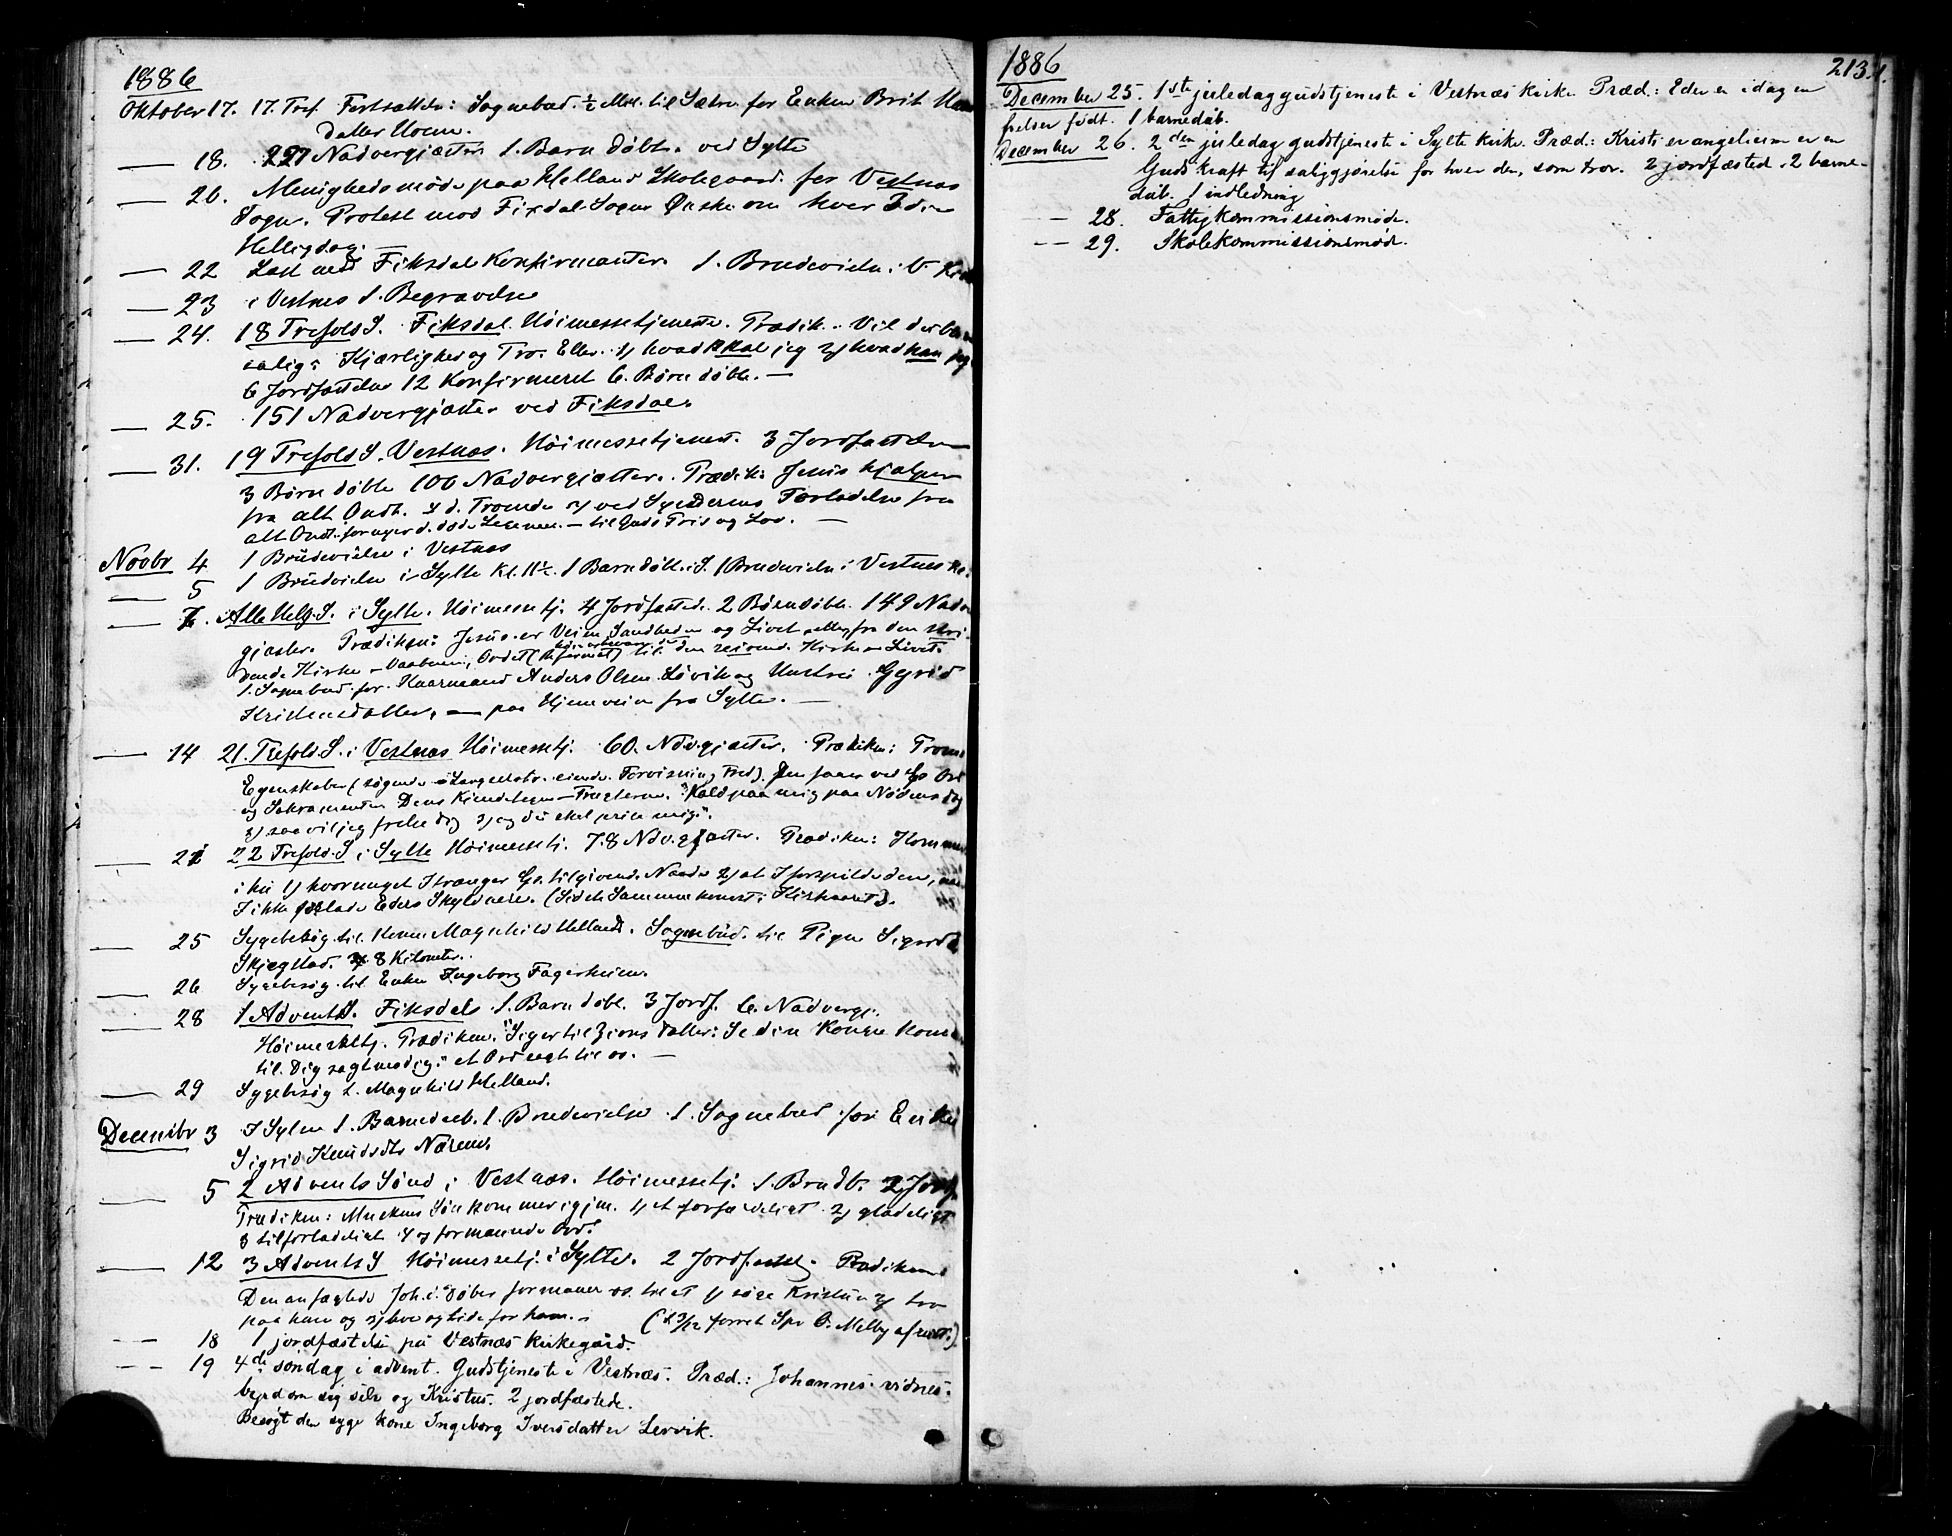 1886
Oktober 17. 17. Tref. Fortsættelse: Sognebud. ½ Mil. til Sætre for Enken Brit
datter Moen.
— 18. 227 Nadvergjæster 1. Barn døbt. ved Sylte
— 20. Menighedsmøde paa Helland Skolegaard. for Vestnæs
Sogn. Protest mod Fixdal Sogns Ønske om hver 3die
Helligdag. —
— 22 Læst med Fiksdal Konfirmanter. 1. Brudevielse i V.
— 23 i Vestnes 1. Begravelse
— 24. 18 Trefold S. Fiksdal. Høimessetjeneste. Prædik.: Vil du
salig: Kjærlighed og Tro. Eller. 1) hvad skal jeg 2) hvad kan jeg
6 Jordfæstelse 12 Konfirmeret 6. Børn døbt. —
— 25. 151 Nadvergjæster ved Fiksdal.
— 31. 19 Trefold S. Vestnæs. Høimessetjenest. 3 Jordfæstelse
3 Børn døbte 100 Nadvergjæster. Prædik: Jesus hjælper
fra alt Ondt. d. Troende 2) ved Syndernes Forladelse fra
alt Ondt. — til Guds Pris og Lov. —
Novbr 4 1 Brudevielse i Vestnæs
— 5 1 Brudvielse i Sylte Kl. 11½. 1 Barn døbt. i S. 1 Brudevielse i Vestnes
— 7. Alle Helg. S. i Sylte. Høimessetj. 4 Jordfæsted. 2 Børn døbt. 149 Nadv
gjæster. Prædiken: Jesus er Veien Sandheden og Livet fra den stri-
dende Kirke – Ordet til den Kirke Livet.
1. Sognebud. for Kaarmand Anders Olsen Løvik og Hustru Gyrid
Kristensdatter, — paa Hjemveien fra Sylte. —
— 14 21. Trefold. S. i Vestnæs Høimessetj. 60. Ndvgjæster. Prædiken: Troens
Egenskaber (søgende eiende. Forvisning Fred). Den faaes ved Gs Ord
og Sakramenter Dens Kjendetegn – Frugterne. "Kald paa mig paa Nødens dag
2) saa vil jeg frelse dig 3) og du skal prise mig".
— 21 22 Trefold. S. i Sylte Høimessetj. 78 Ndv.gjæster. Prædiken:
i hu 1) hvor meget I trænger Gs. tilgivend. Naade 2) at I forspilde den,
I ikke forlade Eders Skyldnere. (Sidste Sammenkomst i Kirkeaaret).
— 25 Sygebesøg. til Konen Magnhild Helland. Sognebud. til Pigen Sigrid
Skjegstad. 8 Kilometer.
— 26 Sygebesøg til Enken Ingeborg Fagerheim.
— 28 1 Advents S. Fiksdals 1. Barn døbt. 3 Jordf. 6. Nadvergj.
Høimessetj. Prædiken: "Siger til Zions datter: Se din Konge kommer
til. Dig sagtmodig": et Ord sagt til os. —
— 29 Sygebesøg t. Magnhild Helland.
Decembr 3 I Sylte 1. Barnedaab. 1. Brudevielse 1. Sognebud for Enken
Sigrid Knudsdtr Nærem.
— 5 2 Advents Sønd i Vestnæs. Høimessetj. 1. Brudv. 2 Jordf.
Prædiken: Mneskens Søn kommer igjen. 1) et forfærdeligt 2) glædeligt
3 tilforladeligt 4 og formanende Ord.
— 12 3 Advents S Høimessetj. i Sylte. 2 Jordfæstelse. Prædiken
Den anfægtede Joh. d. Døber formaner os til at 1) søge Kristus 2) tro
paa ham og 3) leve og lide for ham. – (d. 3/12 forret Spr O. Melby afreist.)
— 18 1 jordfæstelse på Vestnæs kirkegård.
— 19 4de søndag i advent. Gudstjeneste i Vestnæs. Præd.: Johannes' vidnes-
byrd om sig selv og Kristus. 2 jordfæstede.
Besøgt den syge kone Ingeborg Iversdatter Lervik.
1886
213.
December 25. 1ste juledag gudstjeneste i Vestnæs kirke. Præd.: Eder er idag en
frelser født. 1 barnedåb.
December 26. 2den juledag gudstjeneste i Sylte kirke. Præd.: Kristi evangelium er en
Guds kraft til saliggjørelse for hver den, som tror. 2 jordfæsted. 2 barne-
dåb. 1 indledning
— 28. Fattigkommissionsmøde.
— 29. Skolekommissionsmøde.